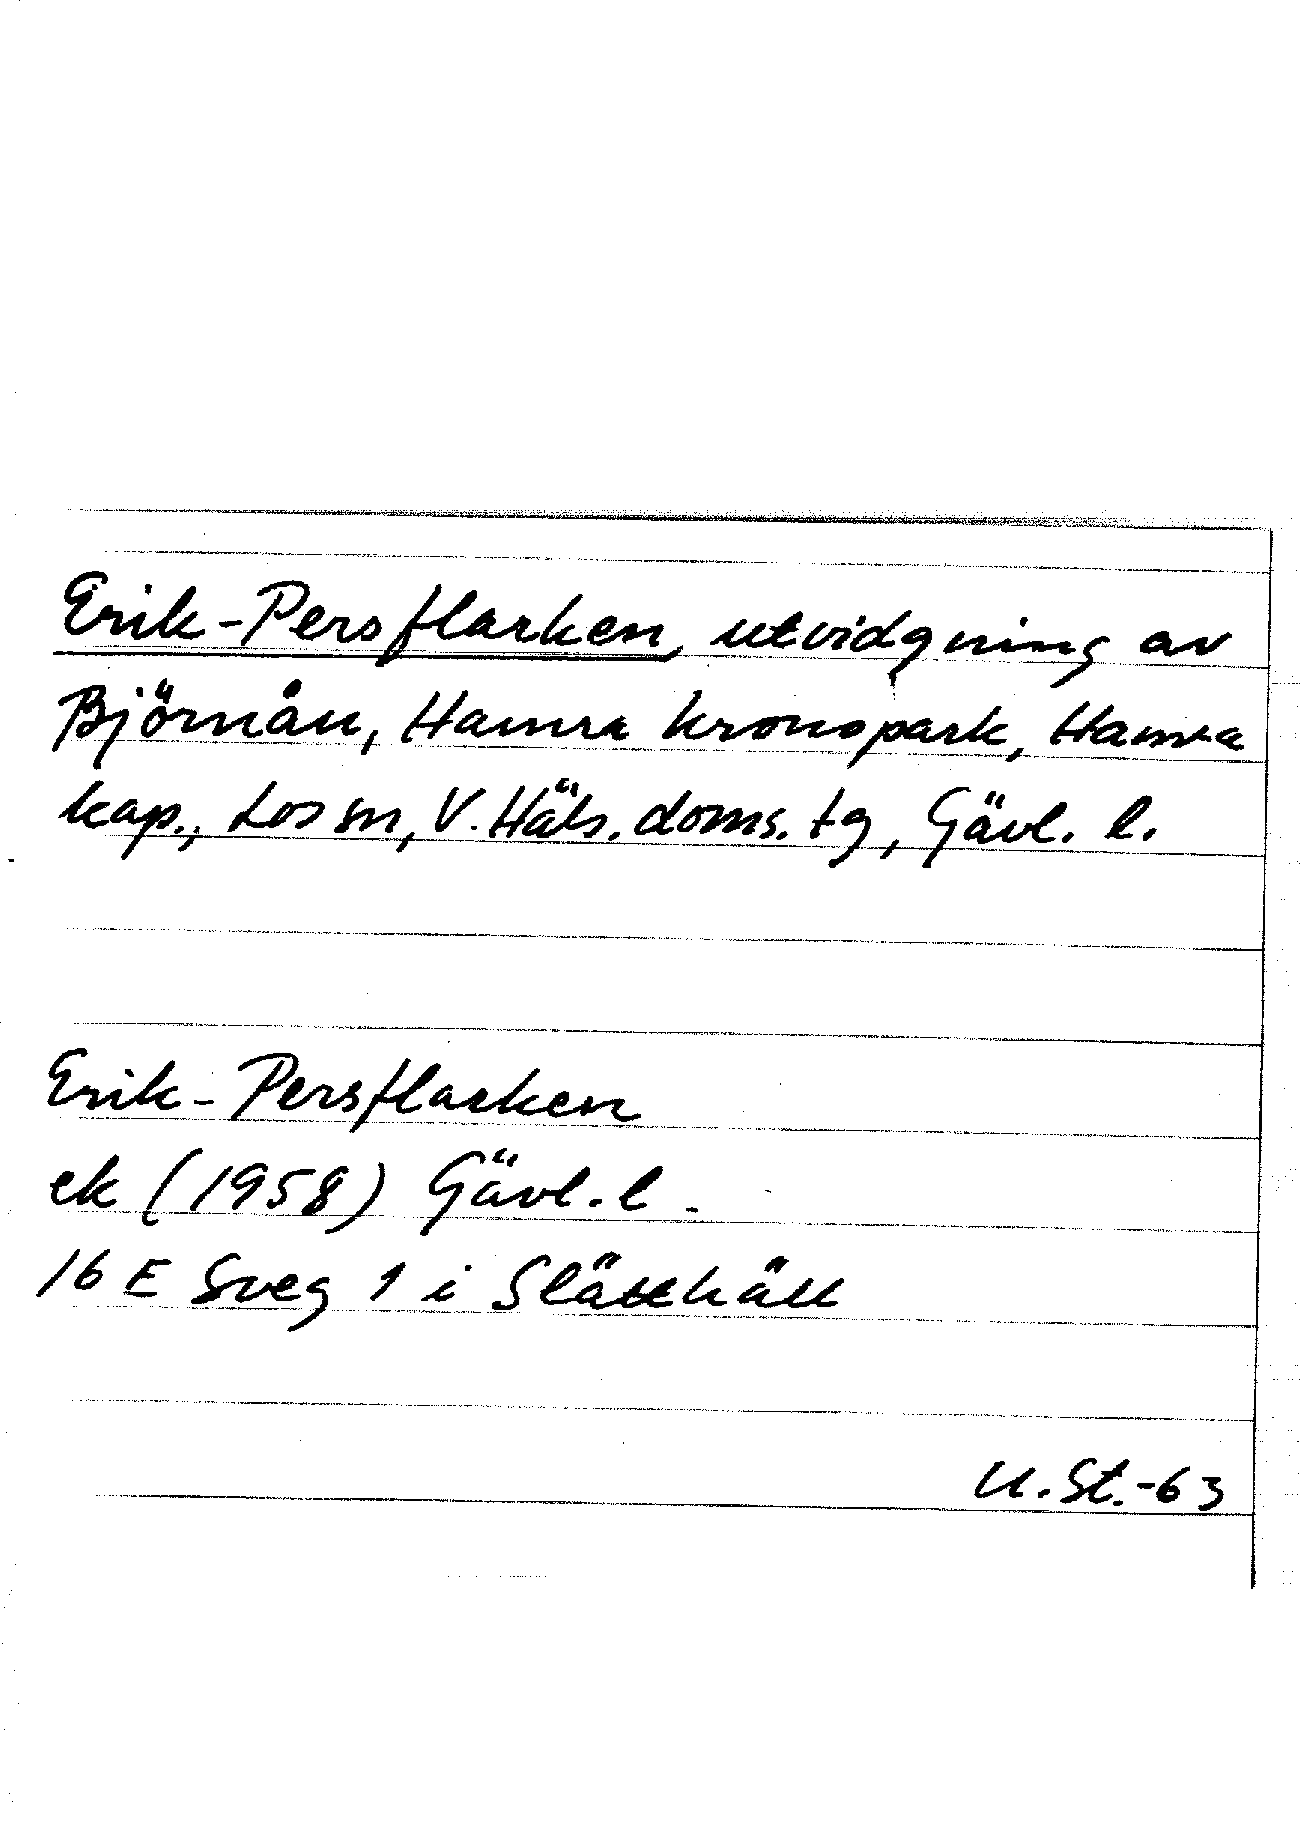 Erik-Persflarken, utvidgning av
Björnån, Hamra kronopark, Hamra
kap., Los sn, V. Häls. doms. tg, Gävl. l.
Erik-Persflarken
ek (1958) Gävl. l.
16 E Sveg 1 i Slätthäll
U. St. -63